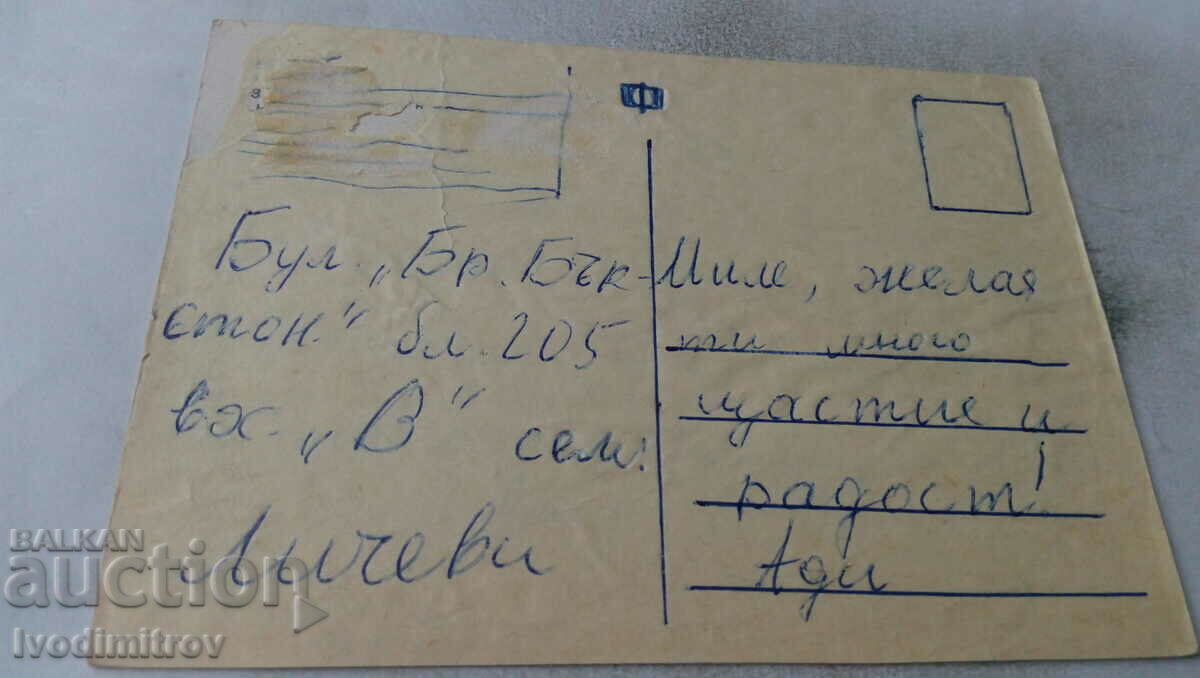 Бул. „Бр. Бък-
стон." бл. 205
вх. „В" сем.
Личеви
Миле, желая
ти много
щастие и
радост!
Ади
BALKAN
auction
Ivodimitrov